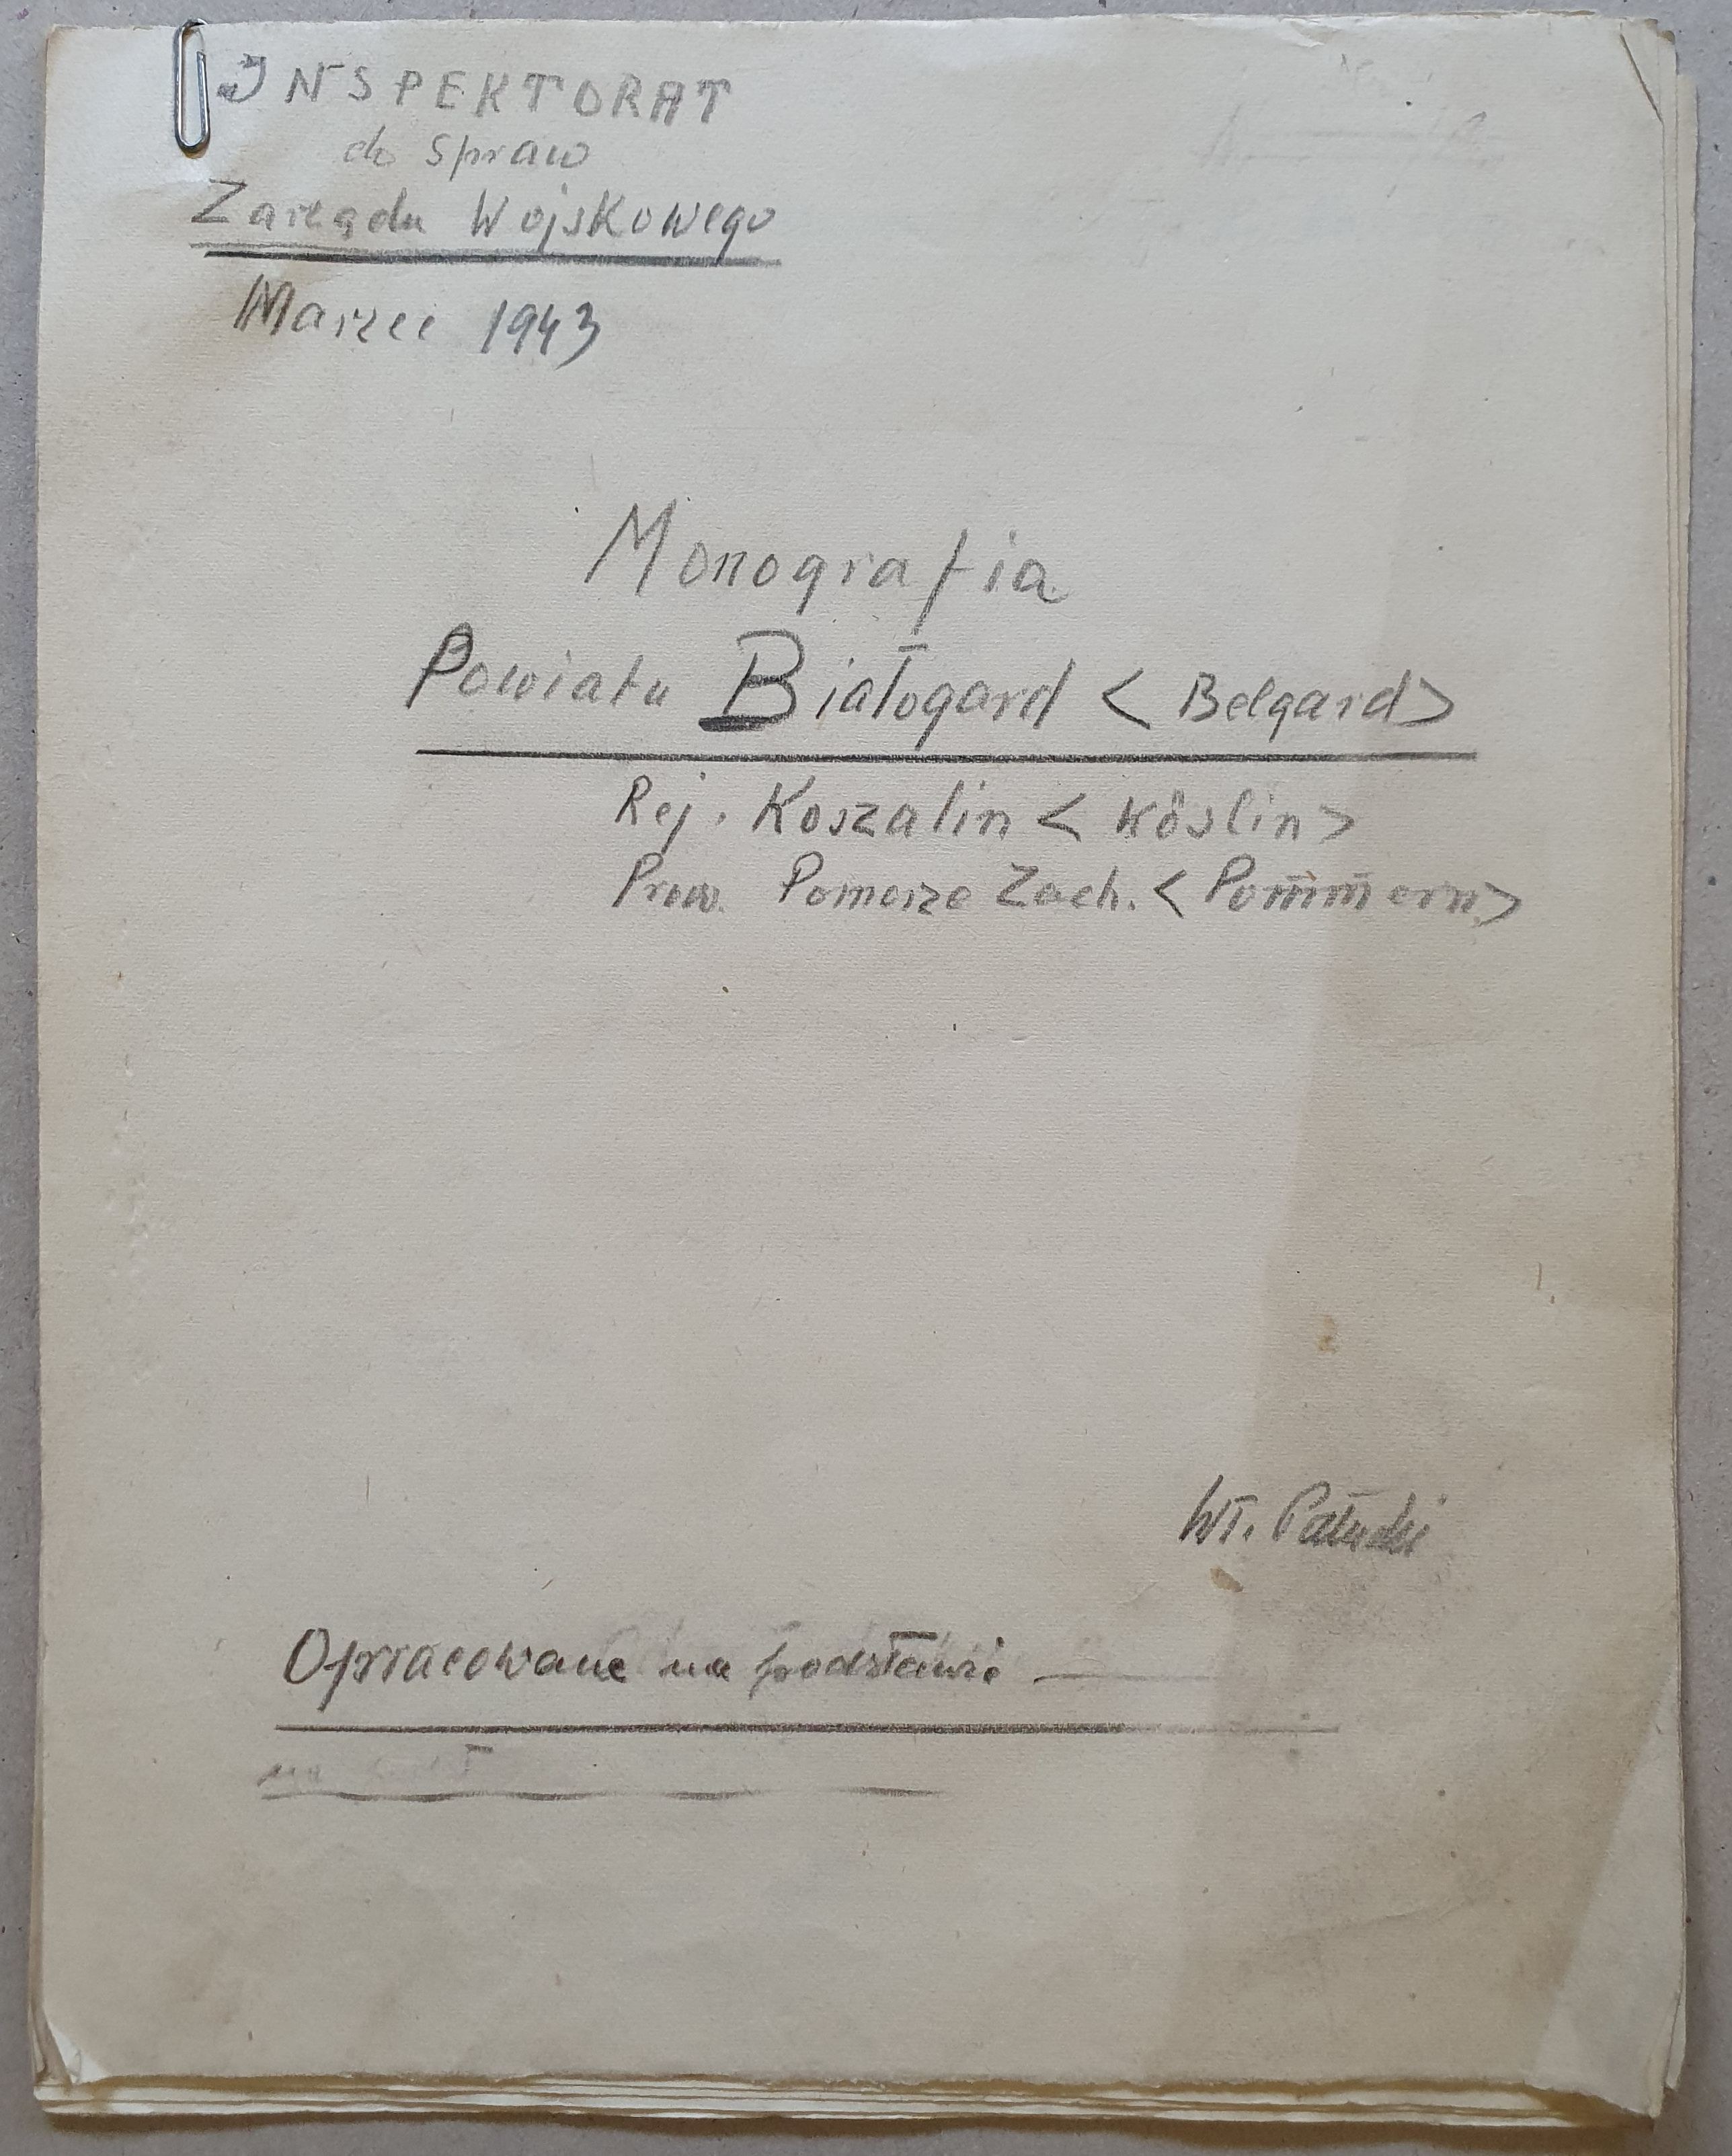 INSPEKTORAT
do spraw
Zarządu Wojskowego
Marzec 1943
Monografia
Powiatu Białogard < Belgard>
Rej. Koszalin < Köslin>
Prow. Pomorze Zach. < Pom̅m̅ern>
Wł. Pałucki
Opracowane na podstawie —
na